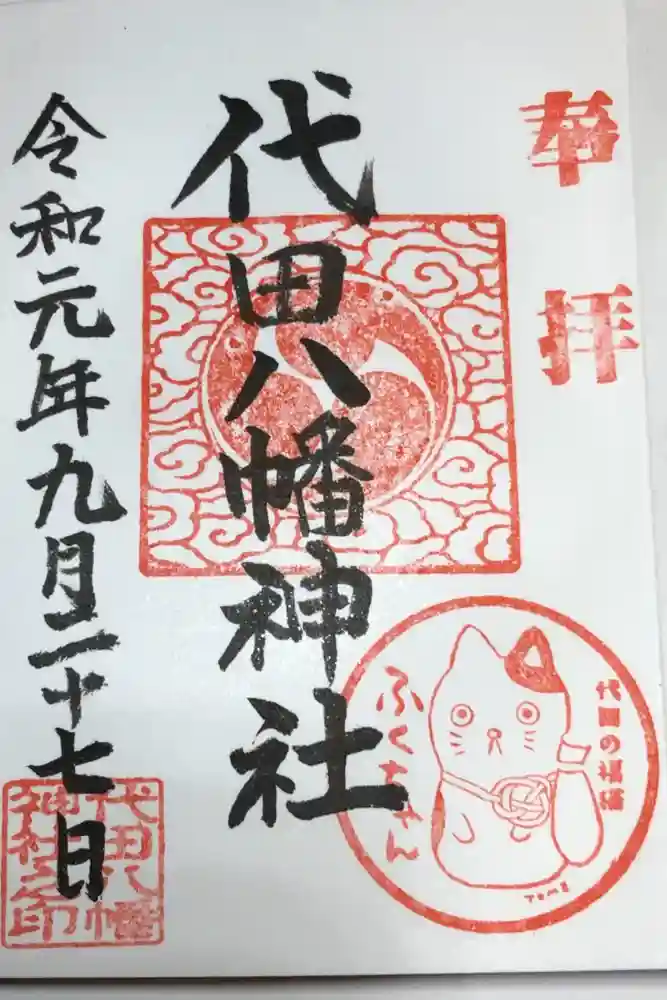 奉拝
代田八幡神社
令和元年九月二十七日
代田の福猫
ふくちゃん
TOMO
代田八幡
神社之印